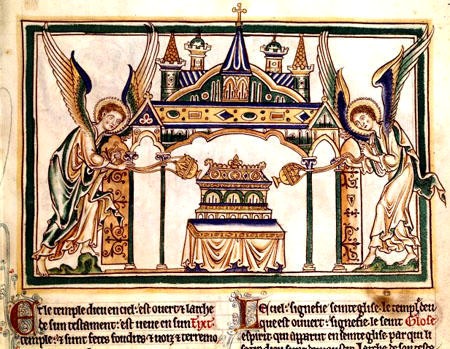 le temple dieu en ciel. est overt & larche
de sun testament. est veue en sun
temple. & sunt fetes foudres & voiz & terremo
Le ciel. signefie seinte glise. le temple deu
que est ouvert. signefie le seint Glose
espirit qui aparut en seinte glise. par qui li